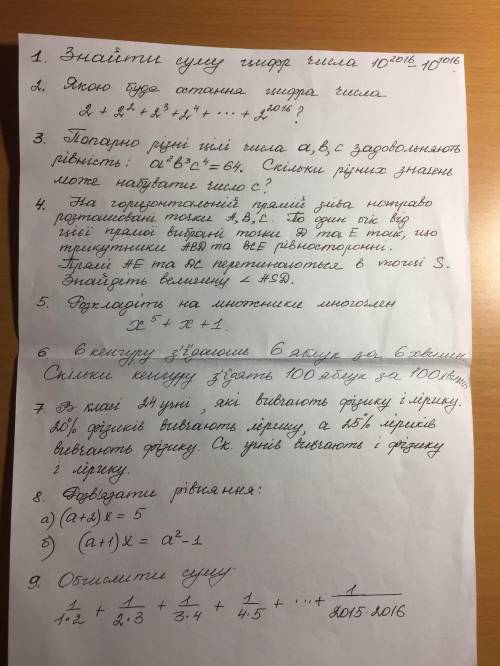 1. Знайти суму цифр числа 10^2016 - 10^1016.
2. Якою буде остання цифра числа
2 + 2^2 + 2^3 + 2^4 + ... + 2^2016?
3. Попарно різні цілі числа a, b, c задовольняють
рівність: a^2b^3c^4 = 64. Скільки різних значень
може набувати число c?
4. На горизонтальній прямій зліва направо
розташовані точки A, B, C. По один бік від
цієї прямої вибрані точки D та E так, що
трикутники ABD та BCE рівносторонні.
Прямі AE та DC перетинаються в точці S.
Знайдіть величину ∠ASD.
5. Розкладіть на множники многочлен
x^5 + x + 1.
6. 6 кенгуру з'їдають 6 яблук за 6 хвилин
Скільки кенгуру з'їдять 100 яблук за 100 хвилин
7. В класі 24 учні, які вивчають фізику і лірику.
20% фізиків вивчають лірику, а 25% ліриків
вивчають фізику. Ск. учнів вивчають і фізику
і лірику.
8. Розв'язати рівняння:
а) (a+2)x = 5
б) (a+1)x = a^2 - 1
9. Обчислити суму:
1/1·2 + 1/2·3 + 1/3·4 + 1/4·5 + ... + 1/2015·2016